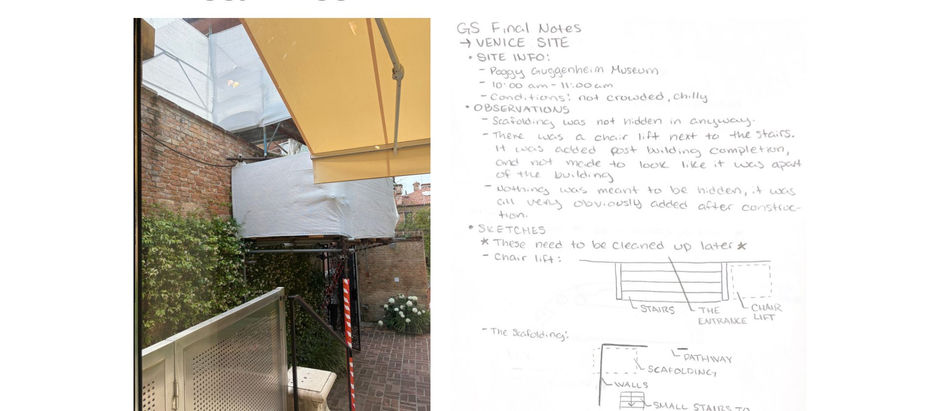 GS Final Notes
→ VENICE SITE
• SITE INFO:
- Peggy Guggenheim Museum
- 10:00 am - 11:00am
- Conditions: not crowded, chilly
• OBSERVATIONS
- Scafolding was not hidden in anyway.
- There was a chair lift next to the stairs.
It was added post building completion,
and not made to look like it was apart
of the building
- Nothing was meant to be hidden, it was
all very obviously added after construc-
tion.
• SKETCHES
* These need to be cleaned up later *
- Chair lift:
STAIRS
THE
ENTRANCE
CHAIR
LIFT
- The Scafolding:
PATHWAY
SCAFOLDING
WALLS
SMALL STAIRS TO